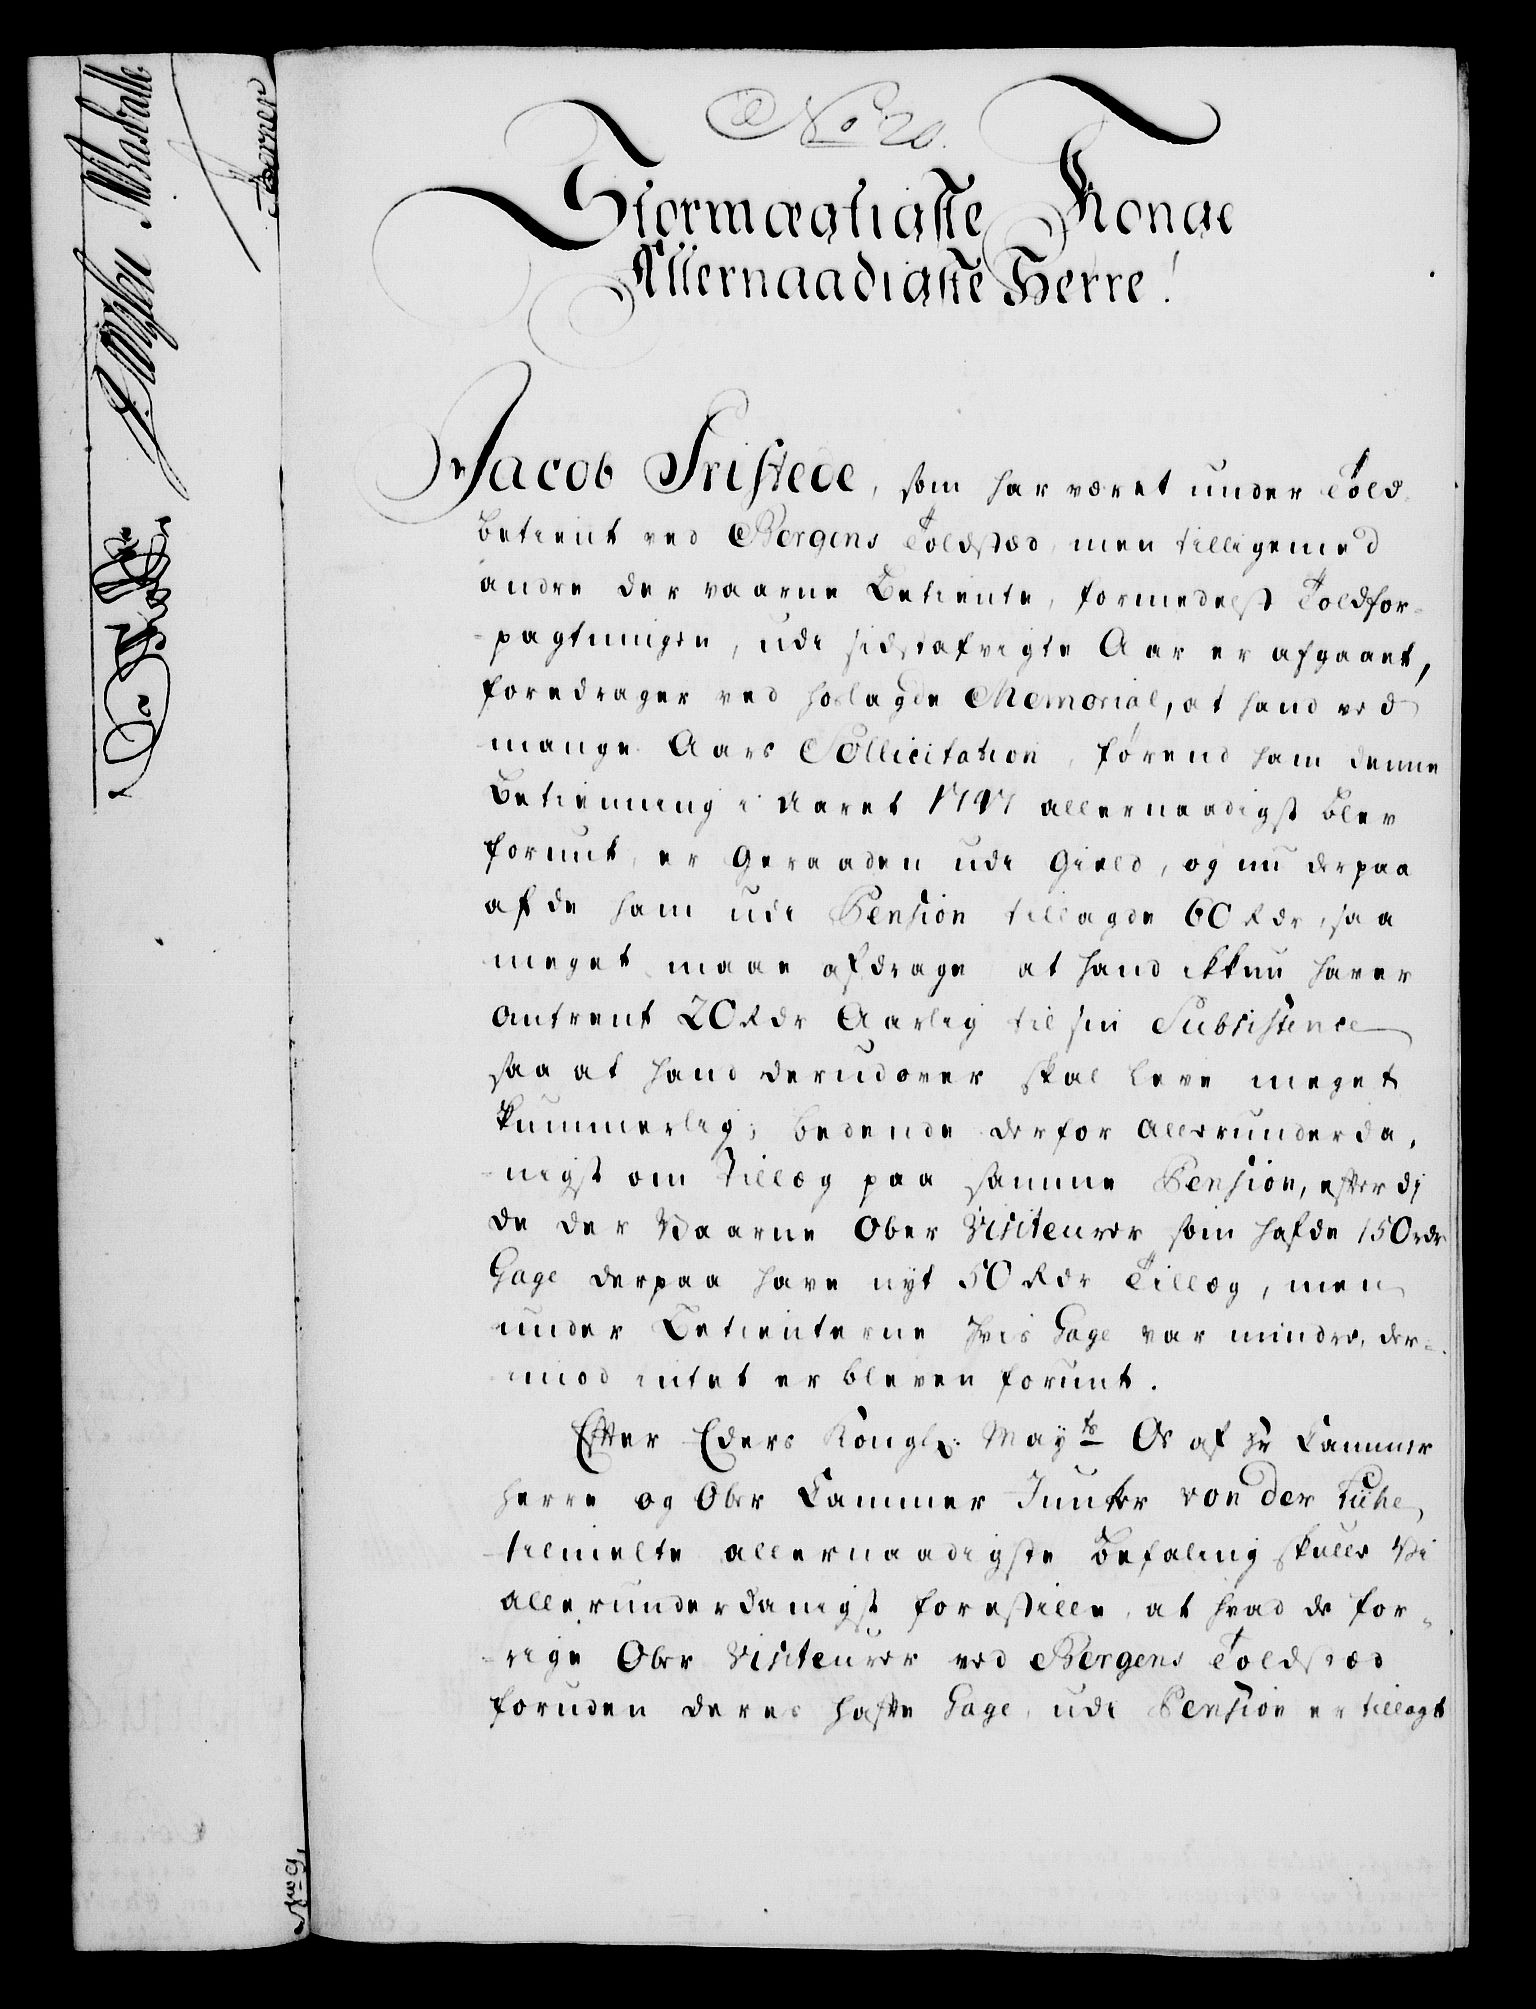 No 20.
Stormægtigste Konge
Allernaadigste Herre!
Jacob Fristede, som har været under Told-
betient ved Bergens Toldstæd, men tilligemed
andre der vaarne Betiente, formedelst Toldfor-
pagtningen, udi sidstafvigte Aar er afgaaet,
foredrager ved hoslagde Memorial, at hand ved
mange Aars Sollicitation, førend ham denne
Betienning i Aaret 1747 allernaadigst blev
forunt, er Geraaden udi Gield, og nu derpaa
af de ham udi Pension tillagde 60 Rdr, saa
meget maae afdrage at hand ikkun haver
omtrent 20 Rdr Aarlig til sin Subsistence
saa at hand derudover skal leve meget
kummerlig; bedende derfor allerunderda-
nigst om Tillæg paa samme Pension, efterdi
de der Vaarne Ober Visiteurer som hafde 150 rdr
Gage derpaa have nyt 50 Rdr Tillæg, men
under Betienterne hvis Gage var mindre, der-
imod intet er bleven forunt.
Efter Eders Kongl. Mayts Os af Hr Cammer
herre og Ober Cammer Junker von der Lühe
tilmelte allernaadigste Befaling skulle Vi
allerunderdanigst forestille, at hvad de for-
rige Ober Visiteurer ved Bergens Toldstæd
foruden deres hafte Gage, udi Pension er tillagt